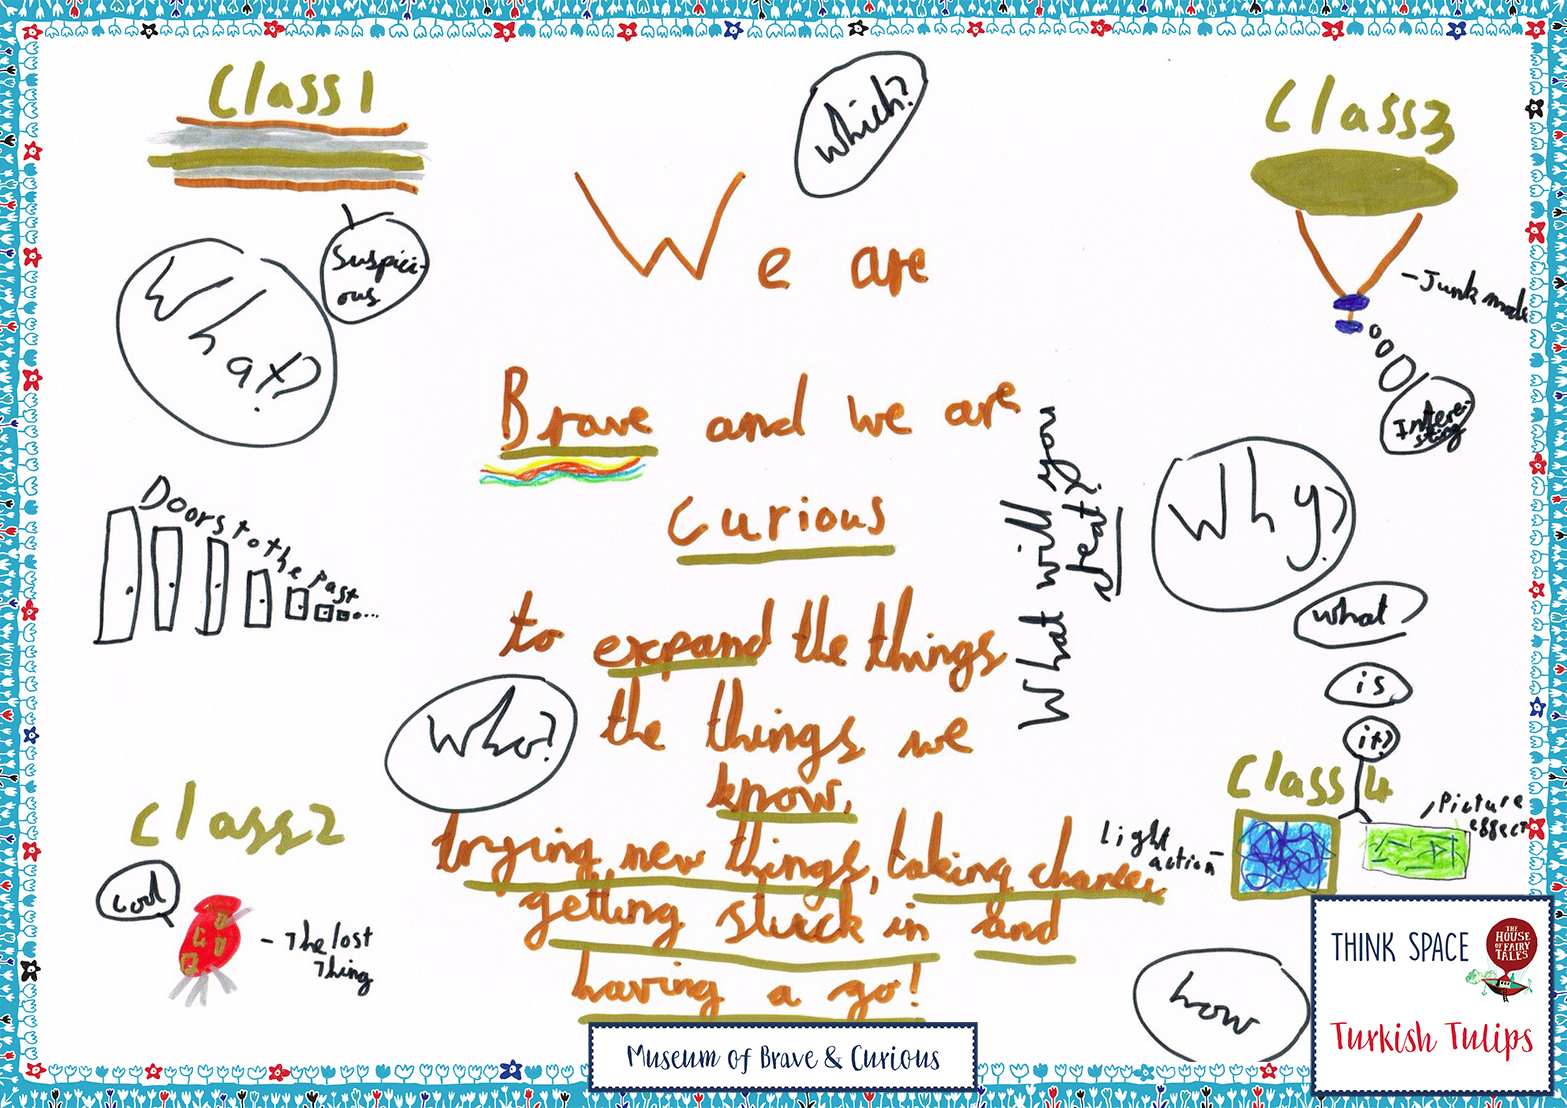 Class 1
Which?
Class 3
We are
Suspici-
ous
What?
- Junk mode
Intere-
sting
Brave and we are
Curious
What will you
Why?
Doors to the past...
to expand the things
what
is
it?
Who?
the things we
know,
Class 2
Class 4
trying new things, taking chances
Light
action
Picture
effect
cool
getting stuck in and
- The lost
Thing
having a go!
how
THINK SPACE
THE
HOUSE
OF FAIRY
TALES
Turkish Tulips
Museum of Brave & Curious